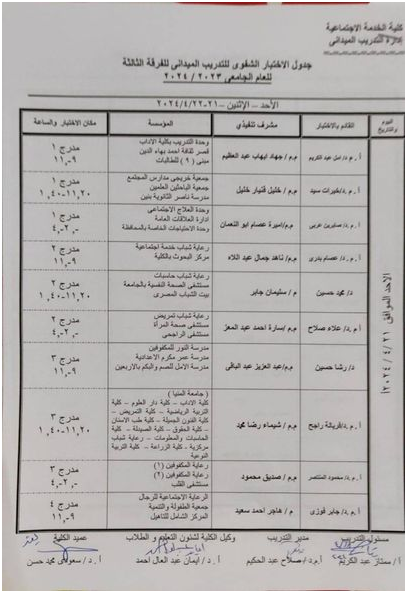 كلية الخدمة الاجتماعية
إدارة التدريب الميدانى
جدول الاختبار الشفوى للتدريب الميدانى للفرقة الثالثة
للعام الجامعى ٢٠٢٣ / ٢٠٢٤
الأحد - الإثنين - ٢١-٢٠٢٤/٤/٢٢
اليوم والتاريخ | القائم بالاختبار | مشرف تنفيذى | المؤسسة | مكان الاختبار والساعة
الاحد الموافق ٢١ / ٤ / ٢٠٢٤
أ . م .د/ امل عبد الكريم | م.م / جهاد ايهاب عبد العظيم | وحدة التدريب بكلية الاداب | مدرج ١
قصر ثقافة احمد بهاء الدين | ٩-١١
مبنى ( ٩ ) للطالبات
أ . م .د/خيرات سيد | م.م / خليل قنبار خليل | جمعية خريجى مدارس المجتمع | مدرج ١
جمعية الباحثين العلمين | ١١,٢٠-١,٤٠
مدرسة ناصر الثانوية بنين
أ . م .د/صابرين عربى | م.م/اميرة عصام ابو النعمان | وحدة العلاج الاجتماعى | مدرج ١
ادارة العلاقات العامة | ٢-٤,٠
وحدة الاحتياجات الخاصة بالمحافظة
أ . م .د/عصام بدرى | م.م/ ناهد جمال عبد اللاه | رعاية شباب خدمة اجتماعية | مدرج ٢
مركز البحوث بالكلية | ٩-١١
د/ محمد حسين | م / سليمان جابر | رعاية شباب حاسبات | مدرج ٢
مستشفى الصحة النفسية بالجامعة | ١١,٢٠-١,٤٠
بيت الشباب المصرى
أ .م .د/ علاء صلاح | م.م /سارة احمد عبد المعز | رعاية شباب تمريض | مدرج ٢
مستشفى صحة المرأة | ٢-٤,٠
مستشفى الراجحى
د/ رشا حسين | م.م/عبد العزيز عبد الباقى | مدرسة النور للمكفوفين | مدرج ٣
مدرسة عمر مكرم الاعدادية | ٩-١١
مدرسة الامل للصم والبكم بالاربعين
أ . م .د/فريالة راجح | م.م / شيماء رضا محمد | ( جامعة المنيا ) | مدرج ٣
كلية الاداب - كلية دار العلوم - كلية | ١١,٢٠-١,٤٠
التربية الرياضية - كلية التمريض -
كلية الفنون الجميلة - كلية طب الاسنان
- كلية الحقوق - كلية الصيدلة - كلية
الحاسبات والمعلومات - رعاية شباب
مركزية - كلية الزراعة - كلية التربية
النوعية
أ . م .د/ محمود المنتصر | م.م / صديق محمود | رعاية المكفوفين (١) | مدرج ٣
رعاية المكفوفين (٢) | ٢-٤,٠
مستشفى القلب
أ . م .د/ جابر فوزى | م / هاجر احمد سعيد | الرعاية الاجتماعية للرجال | مدرج ٤
جمعية الطفولة والتنمية | ٩-١١
المركز الشامل للتاهيل
مسئول التدريب | مدير التدريب | وكيل الكلية لشئون التعليم و الطلاب | عميد الكلية
أ / ممتاز عبد الكريم | أ.م.د/ صلاح عبد الحكيم | أ.د / ايمان عبد العال احمد | أ.د/ سعودى محمد حسن